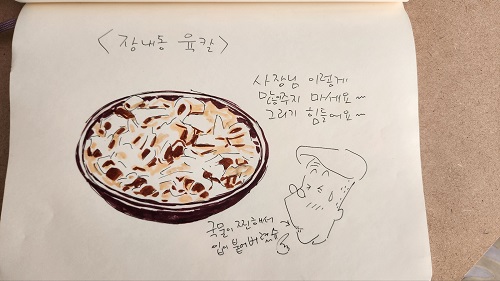 <장내동 육칼>
사장님 이렇게
만들주지 마세요~
그리기 힘들어요~
국물이 찐해서
입이 붙어버렸슴